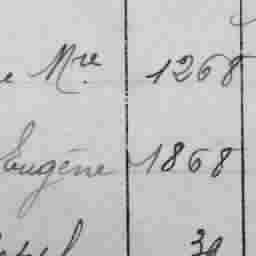 Mre 1268
Eugène 1868
39